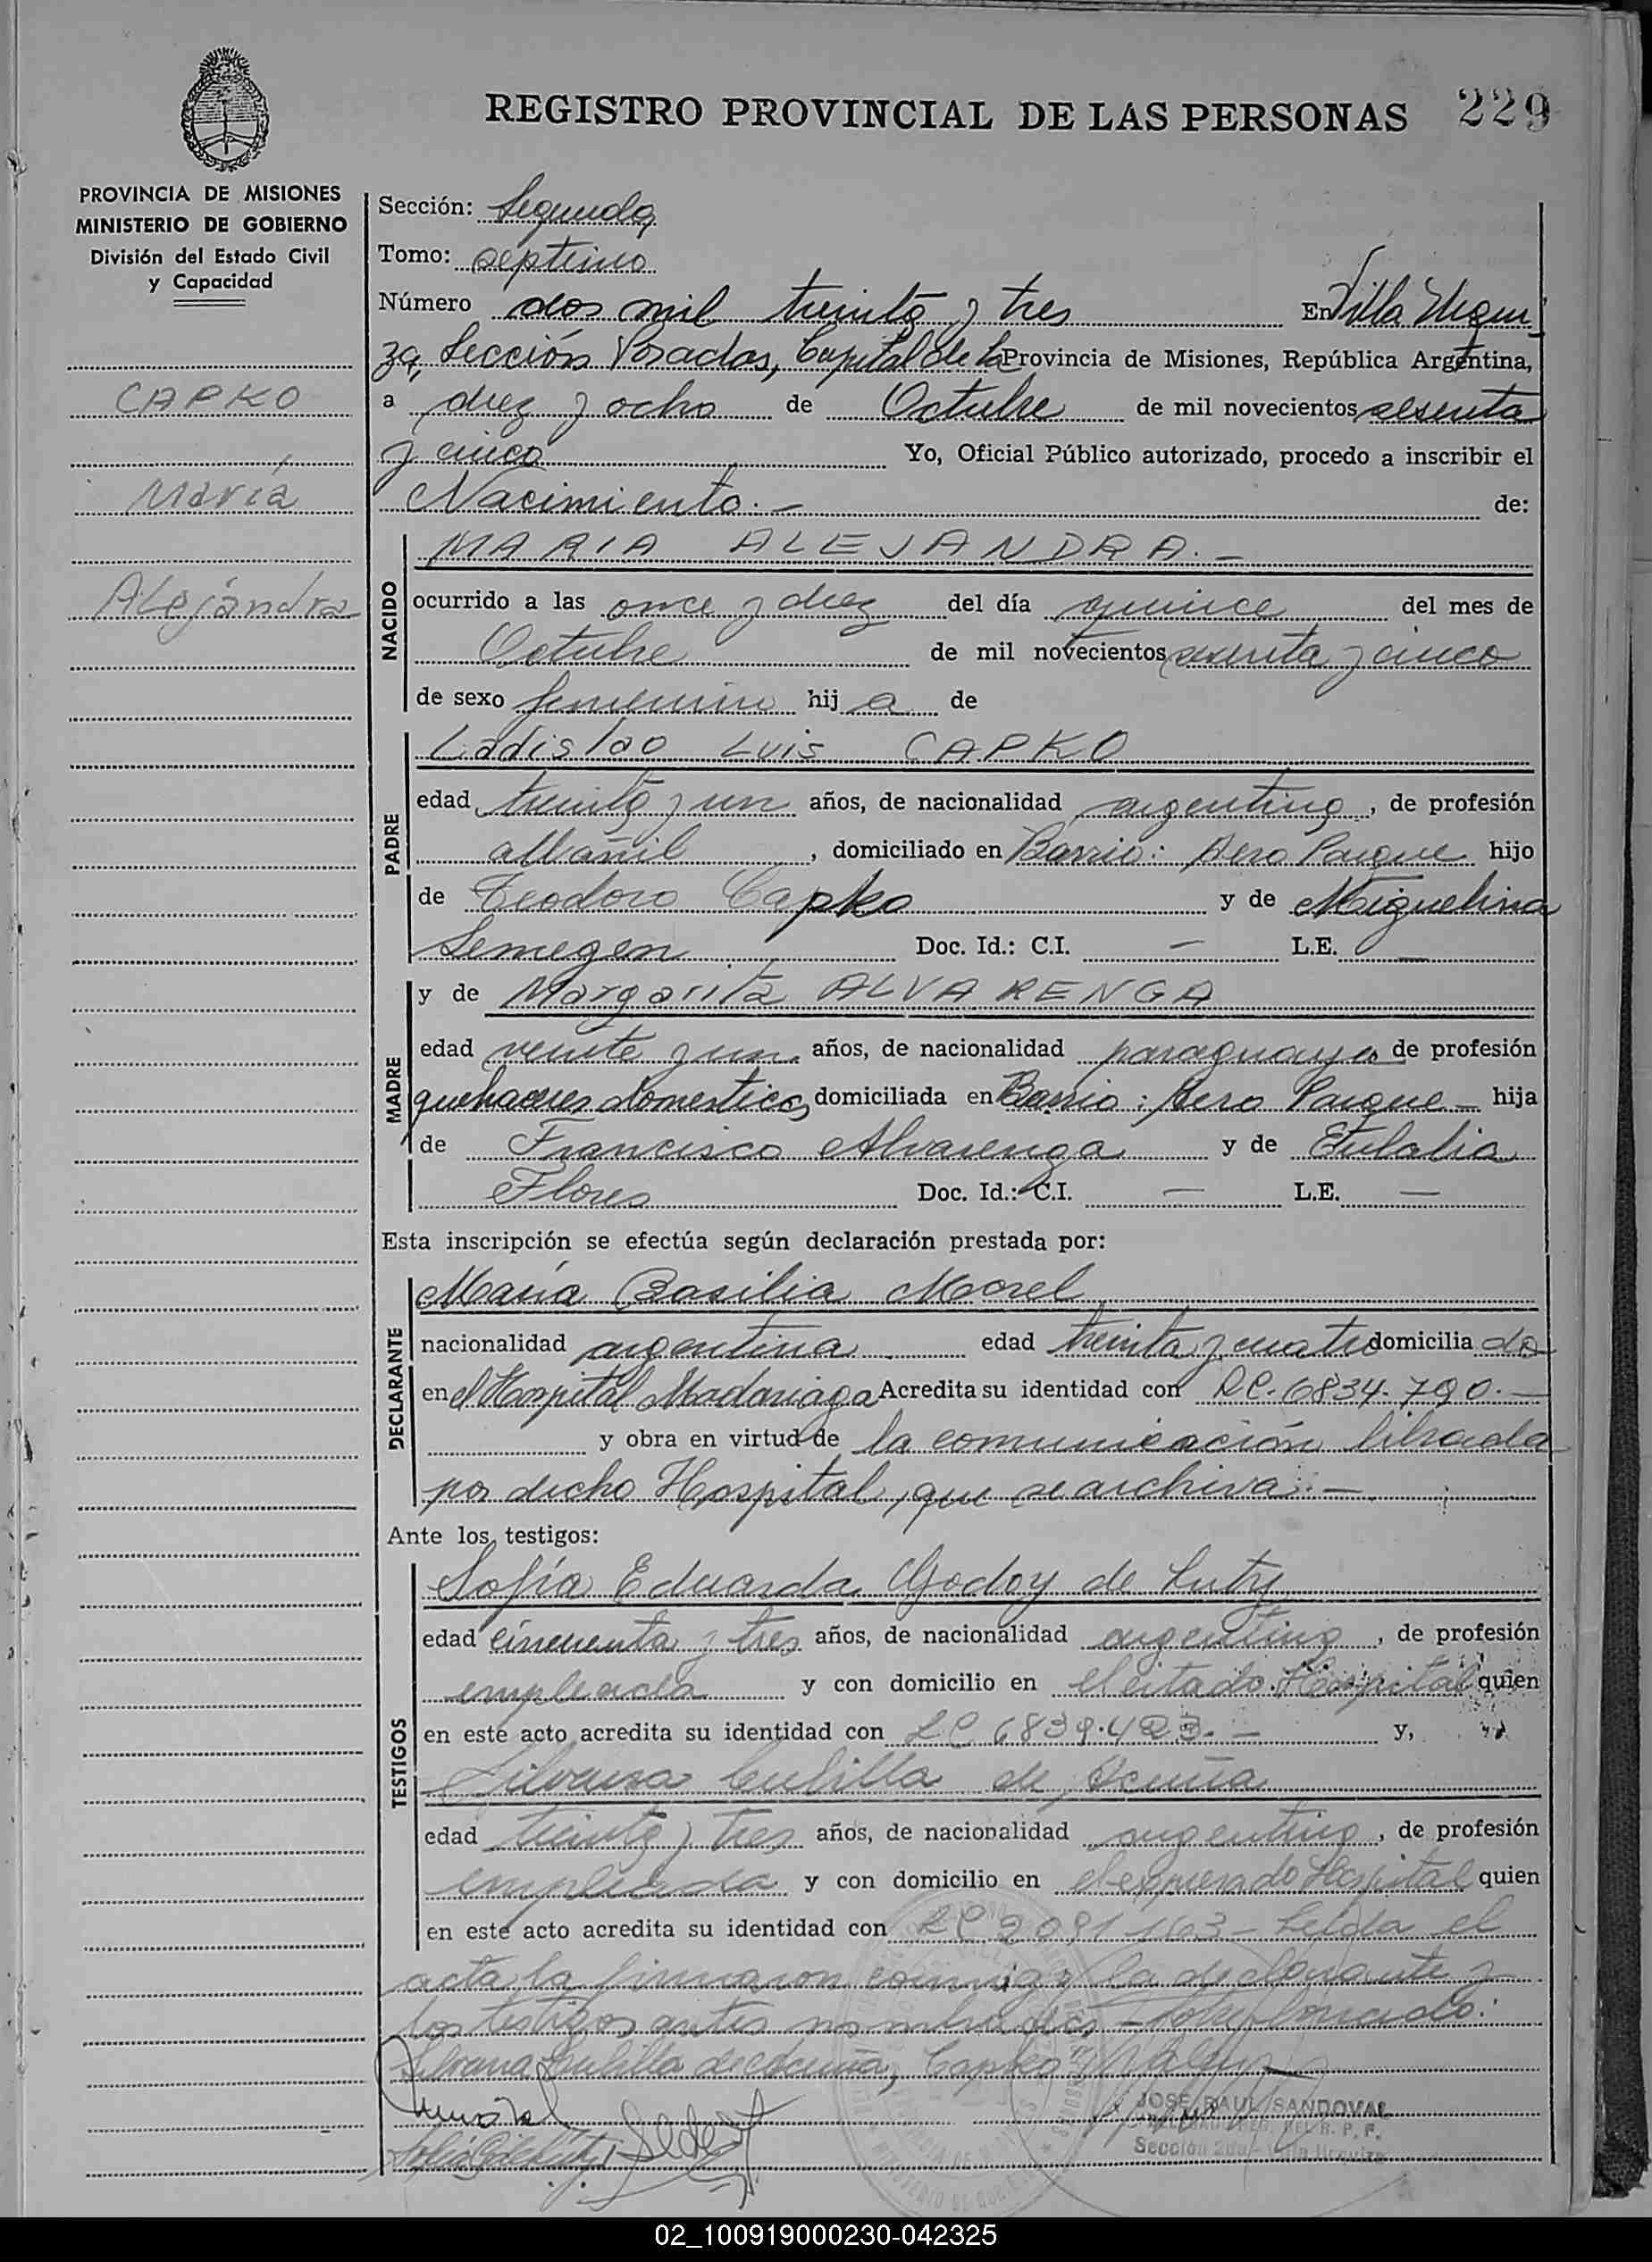 REGISTRO PROVINCIAL DE LAS PERSONAS 229
PROVINCIA DE MISIONES
MINISTERIO DE GOBIERNO
División del Estado Civil
y Capacidad
CAPKO
María
Alejandra
Sección: Segunda
Tomo: septimo
Número dos mil treinta y tres En Villa Urqui
za, Sección Posadas, Capital de la Provincia de Misiones, República Argentina,
a diez y ocho de Octubre de mil novecientos sesenta
y cinco Yo, Oficial Público autorizado, procedo a inscribir el
Nacimiento.- de:
NACIDO
MARIA ALEJANDRA.-
ocurrido a las once y diez del día quince del mes de
Octubre de mil novecientos sesenta y cinco
de sexo femenino hij a de
PADRE
Ladislao Luis CAPKO
edad treinta y un años, de nacionalidad argentina, de profesión
albañil, domiciliado en Barrio: Aero Parque hijo
de Teodoro Capko y de Miguelina
Semegen Doc. Id.: C.I. — L.E. —
MADRE
y de Margarita ALVARENGA
edad veinte y un años, de nacionalidad paraguaya de profesión
quehaceres domesticos, domiciliada en Barrio: Aero Parque - hija
de Francisco Alvarenga y de Eulalia
Flores Doc. Id.: C.I. — L.E. —
Esta inscripción se efectúa según declaración prestada por:
DECLARANTE
María Basilia Morel
nacionalidad argentina edad treinta y cuatro domicilia da
en el Hospital Madariaga Acredita su identidad con 6834.790.-
y obra en virtud de la comunicación librada
por dicho Hospital, que se archiva.-
Ante los testigos:
TESTIGOS
Sofía Eduarda Godoy de
edad cincuenta y tres años, de nacionalidad argentina, de profesión
empleada y con domicilio en el citado Hospital quien
en este acto acredita su identidad con LC 6839.423.- y,
Silvana Cubilla de Acuña
edad treinta y tres años, de nacionalidad argentina, de profesión
empleada y con domicilio en el expresado Hospital quien
en este acto acredita su identidad con LC 2091163- Leida el
acta, la firmaron conmigo la declarante y
los testigos antes nombrados - Sobreborrado:
Silvana Cubilla de Acuña, Capko,
JOSE RAUL SANDOVAL
R. P. P.
Sección 2da - Villa Urquiza
02_100919000230-042325